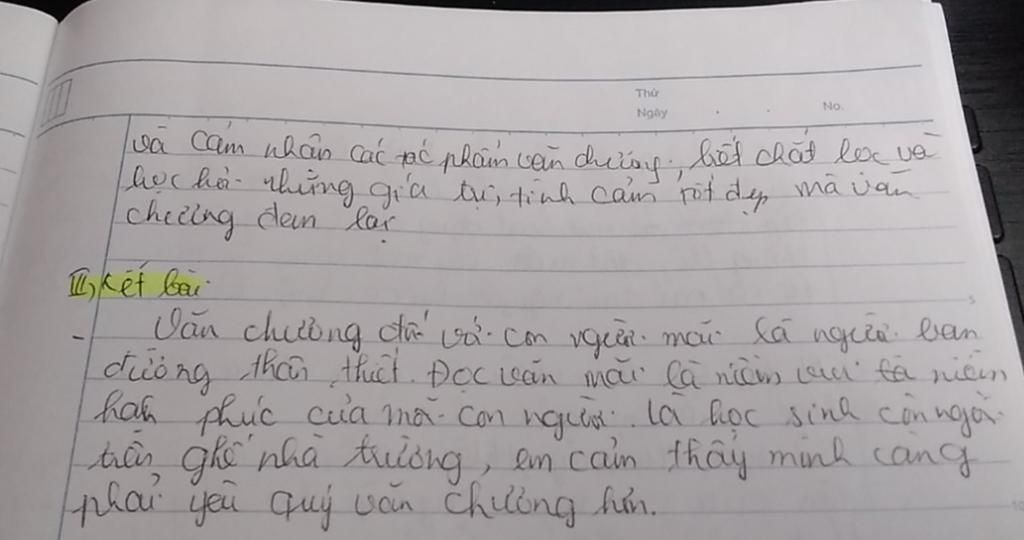 Thứ
Ngày . . No.
và cảm nhận các tác phẩm văn chương, biết chắt lọc và
học hỏi những giá trị, tình cảm tốt đẹp mà văn
chương đem lại
III, Kết bài
- Văn chương đối với con người mãi là người bạn
đường thân thiết. Đọc văn mãi là niềm vui là niềm
hạnh phúc của mỗi con người. là học sinh còn ngồi
trên ghế nhà trường, em cảm thấy mình càng
phải yêu quý văn chương hơn.